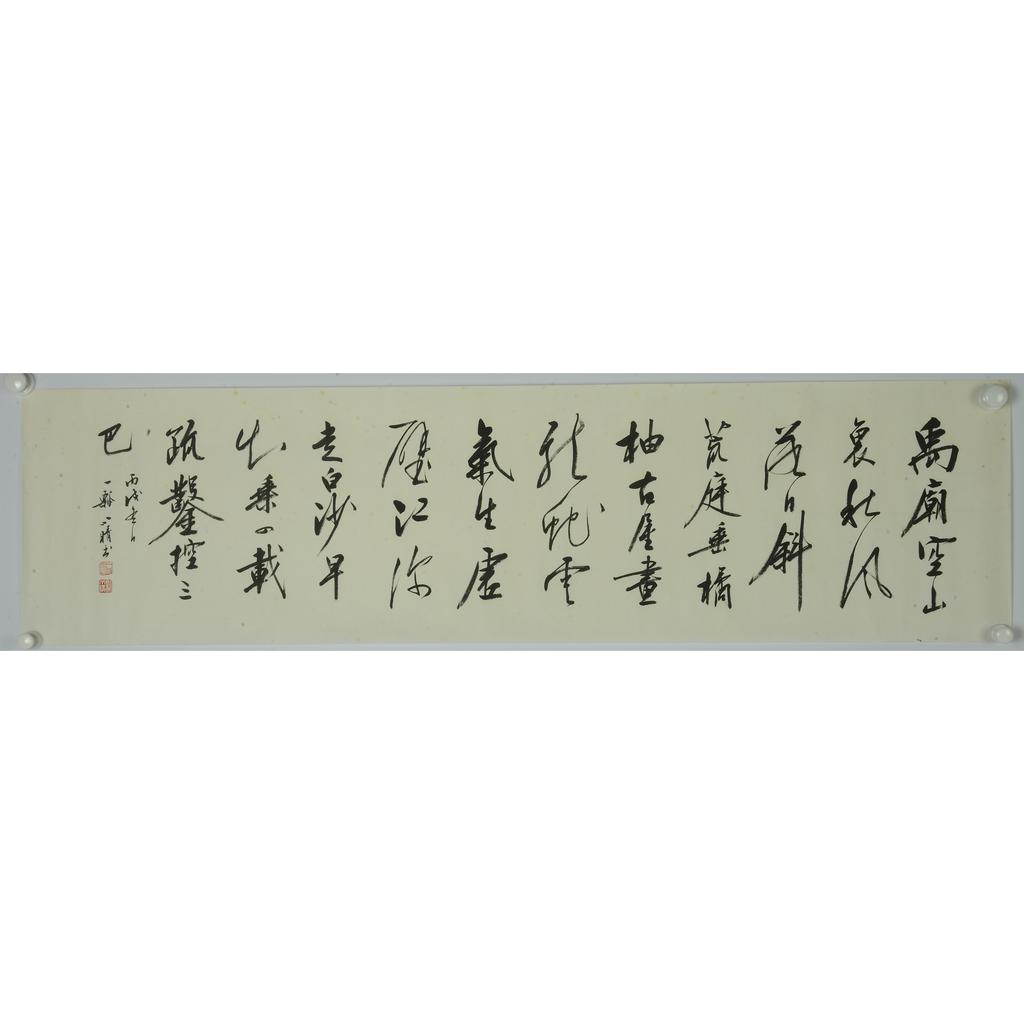 禹廟空山
裏秋風
落日斜
荒庭垂橘
柚古屋畫
龍蛇雲
氣生虛
壁江深
走白沙早
知乘四載
疏鑿控三
巴
丙戌春日